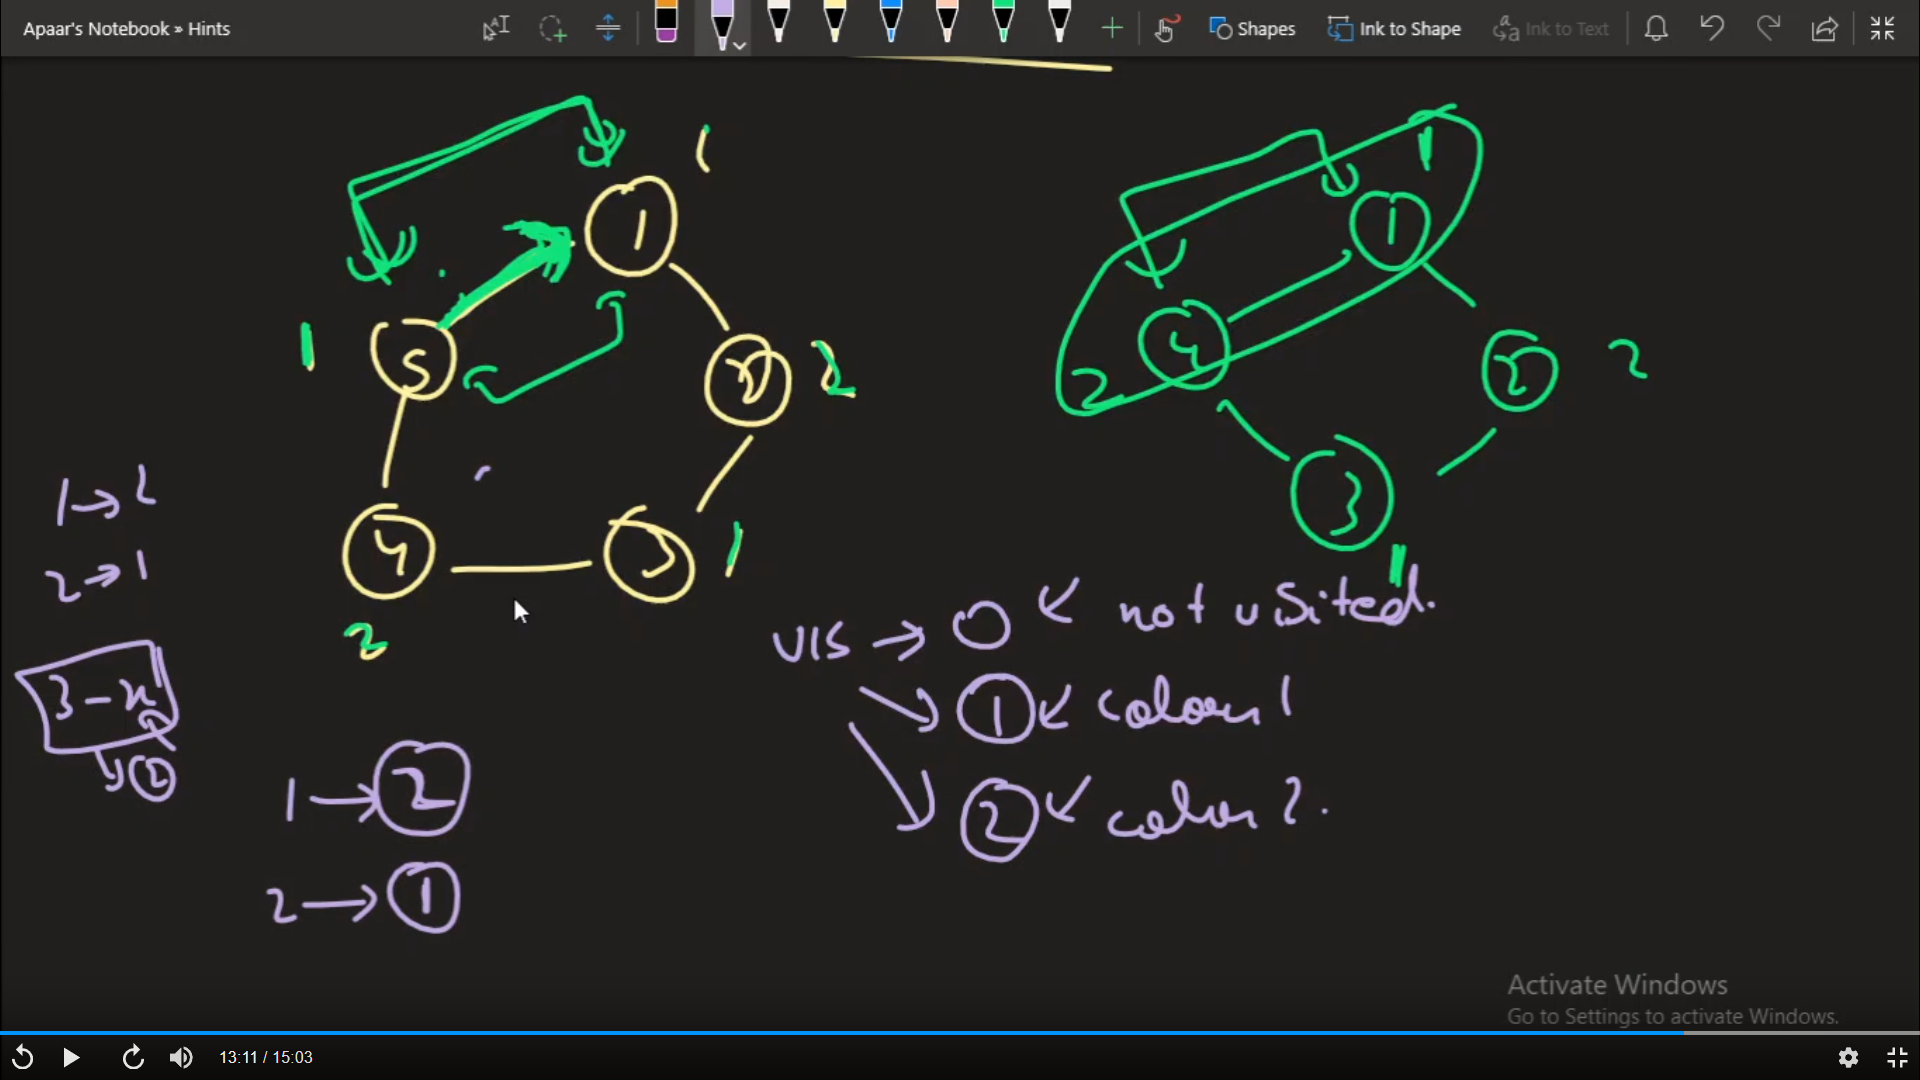 Apaar's Notebook » Hints
Shapes
Ink to Shape
Ink to Text
1
1
2
5
4
3
1
2
1
2
1
1
4
2
3
2
2
1
1 → 2
2 → 1
3 - x
2
1 → 2
2 → 1
VIS → 0 not visited.
1 colour 1
2 colour 2.
Activate Windows
Go to Settings to activate Windows.
13:11 / 15:03